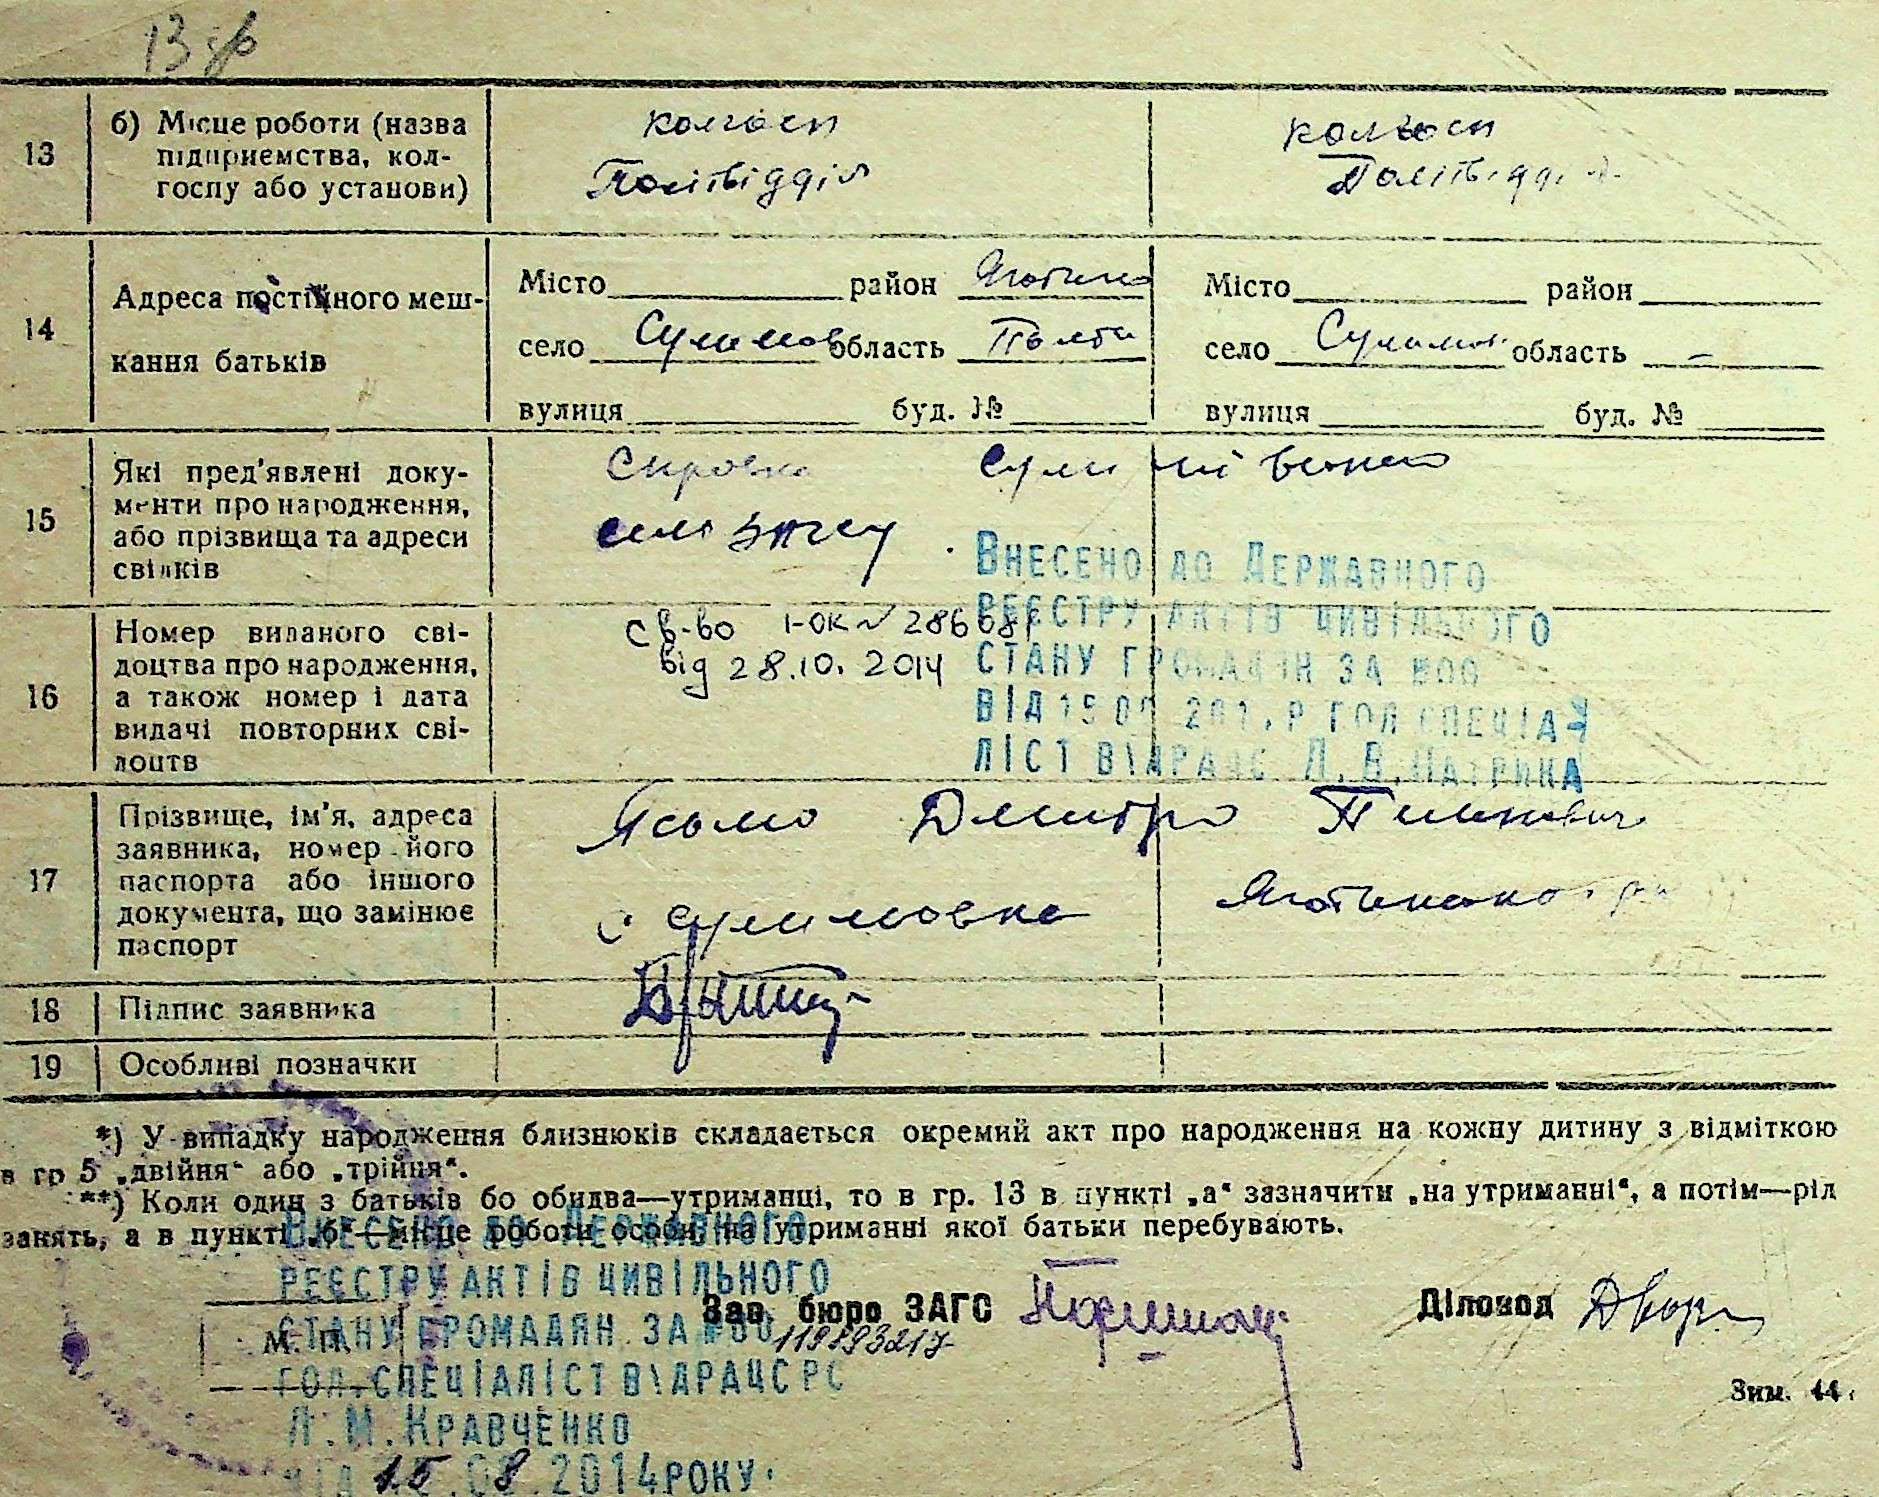 13
13 б) Місце роботи (назва підприємства, кол-госпу або установи)
колгосп
Політвідділ
колгосп
Політвідділ
14 Адреса постійного меш-
кання батьків
Місто район Яготинс
село Сулимов область Полта
вулиця буд. №
Місто район
село Сулимов область –
вулиця буд. №
15 Які пред'явлені доку-
менти про народження,
або прізвища та адреси
свідків
Справка
ЗАГСу
Внесено до Державного
реєстру актів цивільного
стану громадян за №00
від
ліст ВДРАЦС
16 Номер виданого сві-
доцтва про народження,
а також номер і дата
видачі повторних сві-
доцтв
св-во І-ОК №
від 28.10.2014
17 Прізвище, ім'я, адреса
заявника, номер його
паспорта або іншого
документа, що замінює
паспорт
Дмитро
с Сулимовка
18 Підпис заявника
19 Особливі позначки
*) У випадку народження близнюків складається окремий акт про народження на кожну дитину з відміткою
в гр 5 „двійня" або „трійня".
**) Коли один з батьків бо обидва—утриманці, то в гр. 13 в пункті „а" зазначити „на утриманні", а потім—рід
занять, а в пункті „б"—місце роботи особи, на утриманні якої батьки перебувають.
Внесено до Державного
реєстру актів цивільного
стану громадян за №00119893217
гол.спеціаліст ВДРАЦС РС
Л.М.Кравченко
від 15.08.2014 року.
М. П.
Зав. бюро ЗАГС
Діловод
Зим. 44.